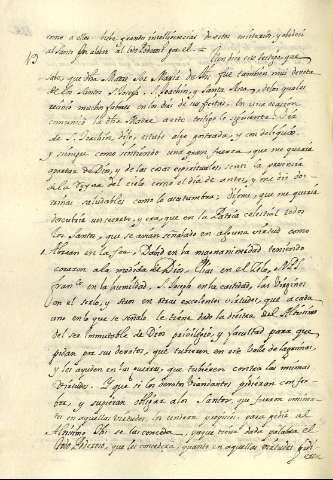 como a ellas hube grandes intelligencias de estos misterios, y alabé
al Santo por alabar al todo Poderoso que el =
13 Tambien este testigo que
sabe, que dha Madre Sor Maria de Jhs fue tambien mui devota
de los Santos S. Joseph, S. Joachin, y Santa Ana, de los quales
recivió muchos fabores en los dias de sus fiestas. En una ocasion
comunicó la dha Madre a este testigo lo siguiente: Dia
de S. Joachin, dijo, estube algo enterada, y con deliquios
y siempre como sintiendo una gran fuerza, que me queria
apartar de Dios, y de las cosas espirituales, sentí la presencia
de la Reyna del cielo como el dia de antes, y me dió do-
trinas saludables como la acostumbra: dijome, que me queria
descubrir un secreto, y era, que en la Patria celestial todos
los Santos, que se avian señalado en alguna virtud como
Abraan en la fee, David en la magnanimidad teniendo
corazon a la medida de Dios, Elias en el zelo, N. P. S.
Franco en la humildad, S. Joseph en la castidad, las Virgines
con el sexto, y otros en otras excelentes virtudes, que a cada
uno en lo que se señaló le tiene dado la diestra del Altissimo
del ser immutable de Dios privilegio, y facultad para que
pidan por sus devotos, que tubieren en este Valle de lagrimas,
y les ayuden en las guerras, que tubieren contra las mismas
virtudes. Y que si los devotos Viandantes pidieran con fer-
bor, y supieran obligar a los Santos, que fueron eminen-
tes en aquellas virtudes, los tendrian propicios para pedir al
Altissimo Dhs se las conceda, porque tienen dada palabra el
todo Poderoso, que las concederá, quanto en aquellas virtudes pidi-
eren